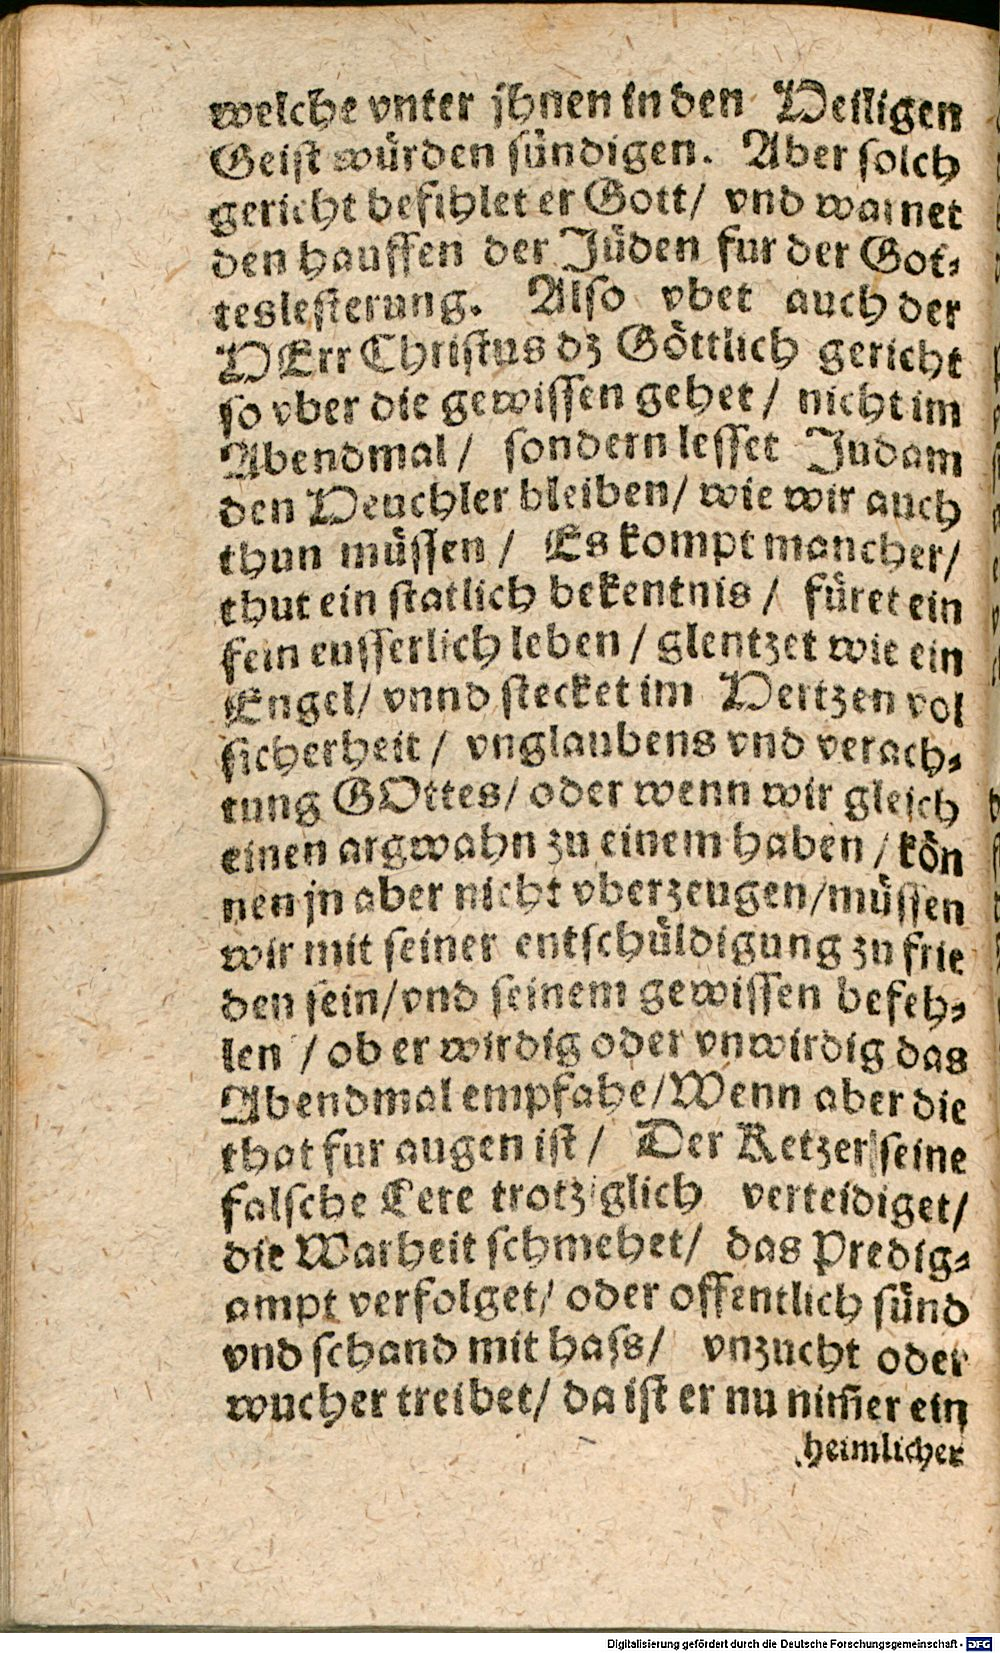 welche vnter jhnen in den Heiligen
Geist würden sündigen. Aber solch
gericht befihlet er Gott/ vnd warnet
den hauffen der Jüden fur der Got⸗
teslesterung. Also vbet auch der
HErr Christus dz Göttlich gericht
so vber die gewissen gehet/ nicht im
Abendmal/ sondern lesset Judam
den Heuchler bleiben/ wie wir auch
thun müssen/ Es kompt mancher/
thut ein statlich bekentnis/ füret ein
fein eusserlich leben/ glentzet wie ein
Engel/ vnnd stecket im Hertzen vol
sicherheit/ vnglaubens vnd verach⸗
tung GOttes/ oder wenn wir gleich
einen argwahn zu einem haben/ kön
nen jn aber nicht vberzeugen/ müssen
wir mit seiner entschüldigung zu frie
den sein/ vnd seinem gewissen befeh⸗
len/ ob er wirdig oder vnwirdig das
Abendmal empfahe/ Wenn aber die
that fur augen ist/ Der Ketzer seine
falsche Lere trotziglich verteidiget/
die Warheit schmehet/ das Predig⸗
ampt verfolget/ oder offentlich sünd
vnd schand mit hass/ vnzucht oder
wucher treibet/ da ist er nu nim̃er ein
heimlicher
Digitalisierung gefördert durch die Deutsche Forschungsgemeinschaft - DFG